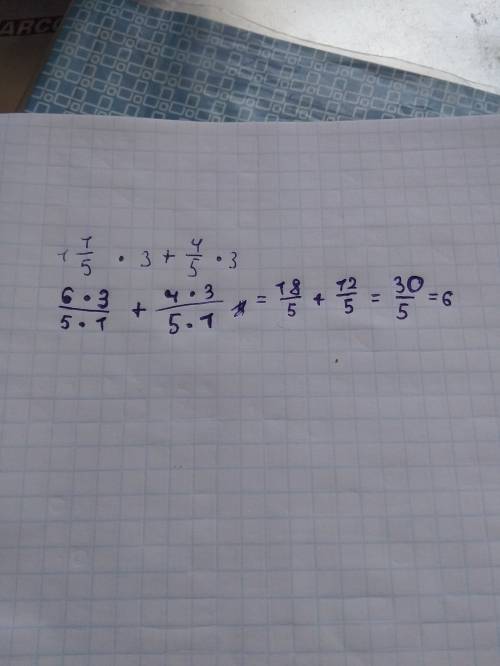 ARCO
1 1/5 · 3 + 4/5 · 3
6·3/5·1 + 4·3/5·1 = 18/5 + 12/5 = 30/5 = 6